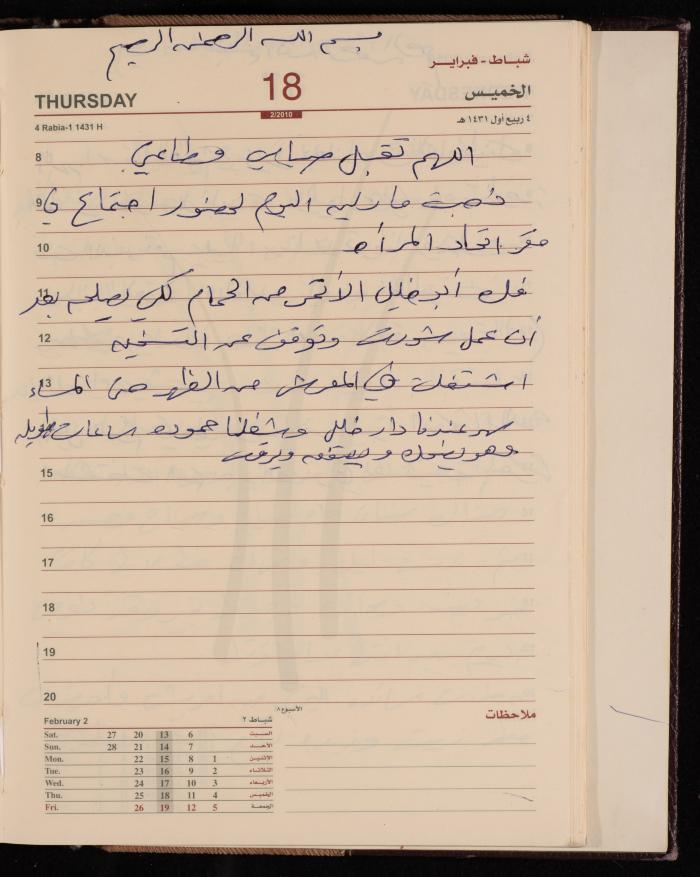 بسم الله الرحمن الرحيم
شباط - فبراير
THURSDAY
18
الخميس
2/2010
4 Rabia-1 1431 H
٤ ربيع أول ١٤٣١ هـ
8 اللهم تقبل صيامي وطاعتي
9 ذهبت مادلين اليوم لحضور اجتماع في
10 مقر اتحاد المرأة
11 فك أبو خليل الأقمر من الحمام لكي يصلحه بعد
12 أن عمل شورت وتوقف عن التسخين
13 اشتغلت في المعرش من الظهر حتى المساء
سهر عندنا دار خليل وشغلنا حموده ساعات طويلة
وهو يضحك و ويرقص
15
16
17
18
19
20
February 2
شباط ٢
الأسبوع ٨
ملاحظات
Sat. 27 20 13 6 السبت
Sun. 28 21 14 7 الأحد
Mon. 22 15 8 1 الإثنين
Tue. 23 16 9 2 الثلاثاء
Wed. 24 17 10 3 الأربعاء
Thu. 25 18 11 4 الخميس
Fri. 26 19 12 5 الجمعة